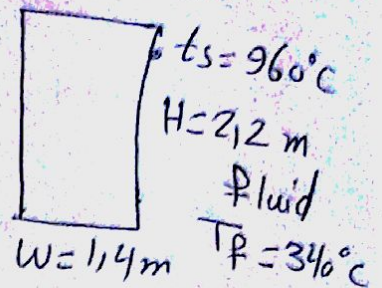 ts=960°C
H=2,2 m
fluid
Tf=340°C
W=1,4m